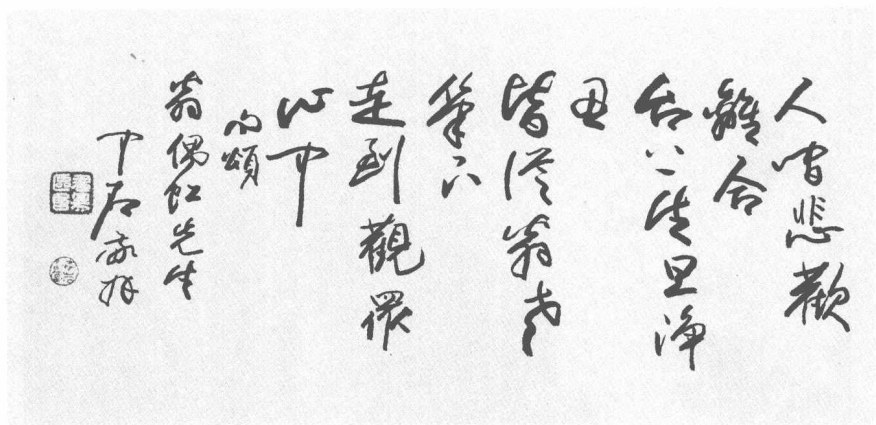 人間悲歡
離合
台上生旦淨
丑
皆從翁老
筆下
走到觀眾
心中
頌
翁偶虹先生
中石敬拜